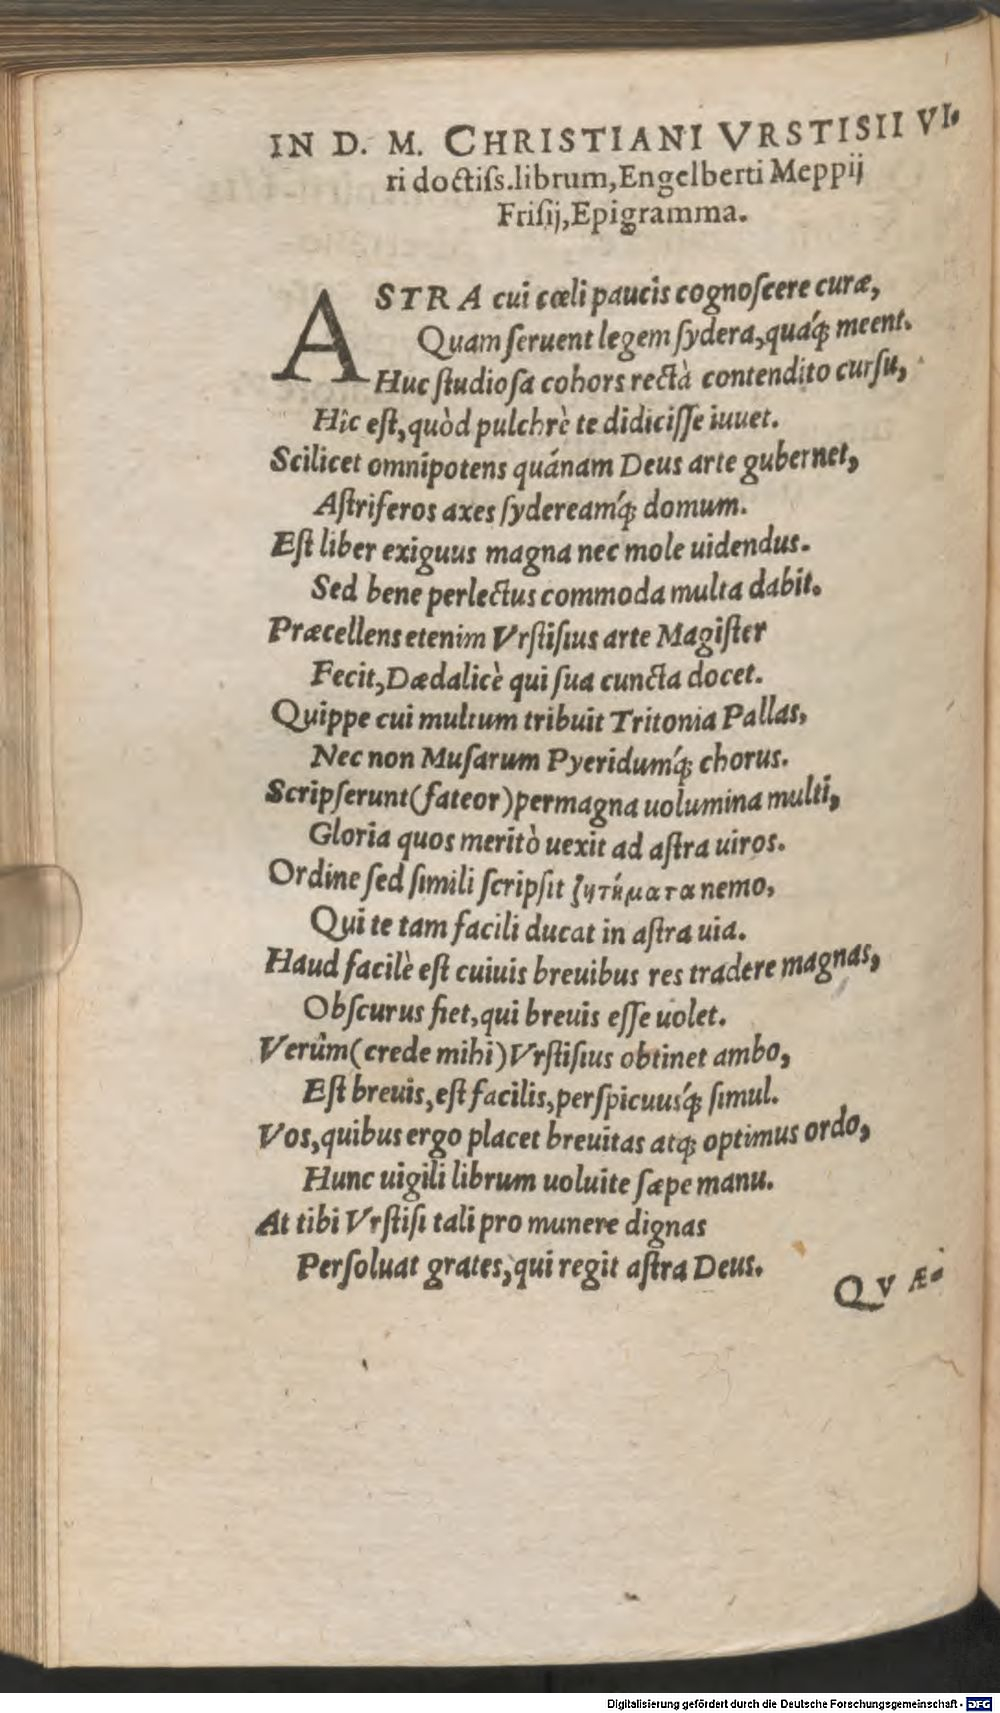 IN D. M. CHRISTIANI VRSTISII VI-
ri doctiſs.librum,Engelberti Meppij
Friſij,Epigramma.
ASTRA cui cœli paucis cognoſcere curæ,
Quam ſeruent legem ſydera,quáq́; meent.
Huc ſtudioſa cohors rectà contendito curſu,
Hîc eſt,quòd pulchrè te didiciſſe iuuet.
Scilicet omnipotens quánam Deus arte gubernet,
Aſtriferos axes ſydereamq́; domum.
Eſt liber exiguus magna nec mole uidendus.
Sed bene perlectus commoda multa dabit.
Præcellens etenim Vrſtiſius arte Magiſter
Fecit,Dædalicè qui ſua cuncta docet.
Quippe cui multum tribuit Tritonia Pallas,
Nec non Muſarum Pyeridumq́; chorus.
Scripſerunt(fateor)permagna uolumina multi,
Gloria quos meritò uexit ad aſtra uiros.
Ordine ſed ſimili ſcripſit ζητήματα nemo,
Qui te tam facili ducat in aſtra uia.
Haud facilè eſt cuiuis breuibus res tradere magnas,
Obſcurus fiet,qui breuis eſſe uolet.
Verûm(crede mihi)Vrſtiſius obtinet ambo,
Eſt breuis,eſt facilis,perſpicuusq́; ſimul.
Vos,quibus ergo placet breuitas atq; optimus ordo,
Hunc uigili librum uoluite ſæpe manu.
At tibi Vrſtiſi tali pro munere dignas
Perſoluat grates,qui regit aſtra Deus.
QVÆ-
Digitalisierung gefördert durch die Deutsche Forschungsgemeinschaft - DFG